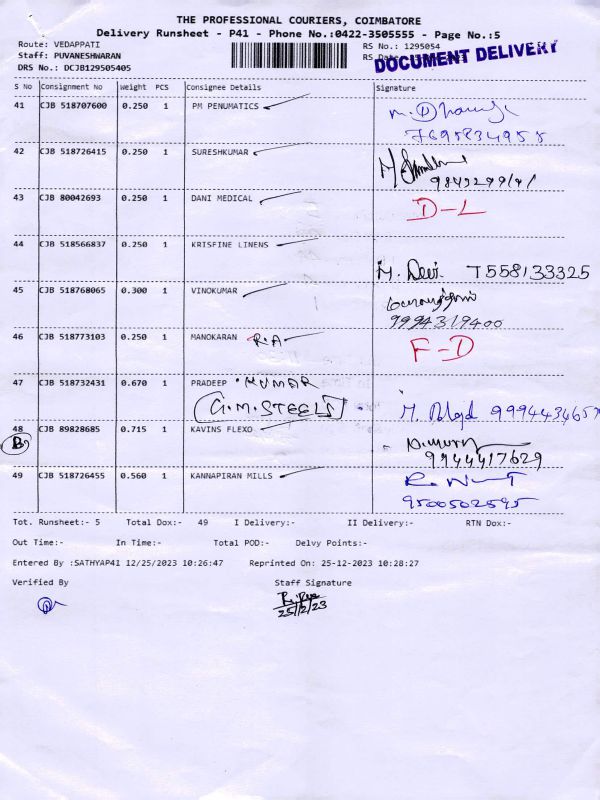 THE PROFESSIONAL COURIERS, COIMBATORE
Delivery Runsheet - P41 - Phone No.:0422-3505555 - Page No.:5
Route: VEDAPPATI
RS No.: 1295054
Staff: PUVANESHWARAN
RS
DOCUMENT DELIVERY
DRS No.: DCJB129505405
S No Consignment No Weight PCS Consignee Details Signature
41 CJB 518707600 0.250 1 PM PENUMATICS
7695834955
42 CJB 518726415 0.250 1 SURESHKUMAR
43 CJB 80042693 0.250 1 DANI MEDICAL D-L
44 CJB 518566837 0.250 1 KRISFINE LINENS
M. Devi T558133325
45 CJB 518768065 0.300 1 VINOKUMAR
9994319400
46 CJB 518773103 0.250 1 MANOKARAN R.A F-D
47 CJB 518732431 0.670 1 PRADEEP KUMAR
G.M.STEELS M.
48 CJB 89828685 0.715 1 KAVINS FLEXO
B
9944417629
49 CJB 518726455 0.560 1 KANNAPIRAN MILLS
9500502595
Tot. Runsheet:- 5 Total Dox:- 49 I Delivery:- II Delivery:- RTN Dox:-
Out Time:- In Time:- Total POD:- Delvy Points:-
Entered By :SATHYAP41 12/25/2023 10:26:47 Reprinted On: 25-12-2023 10:28:27
Verified By Staff Signature